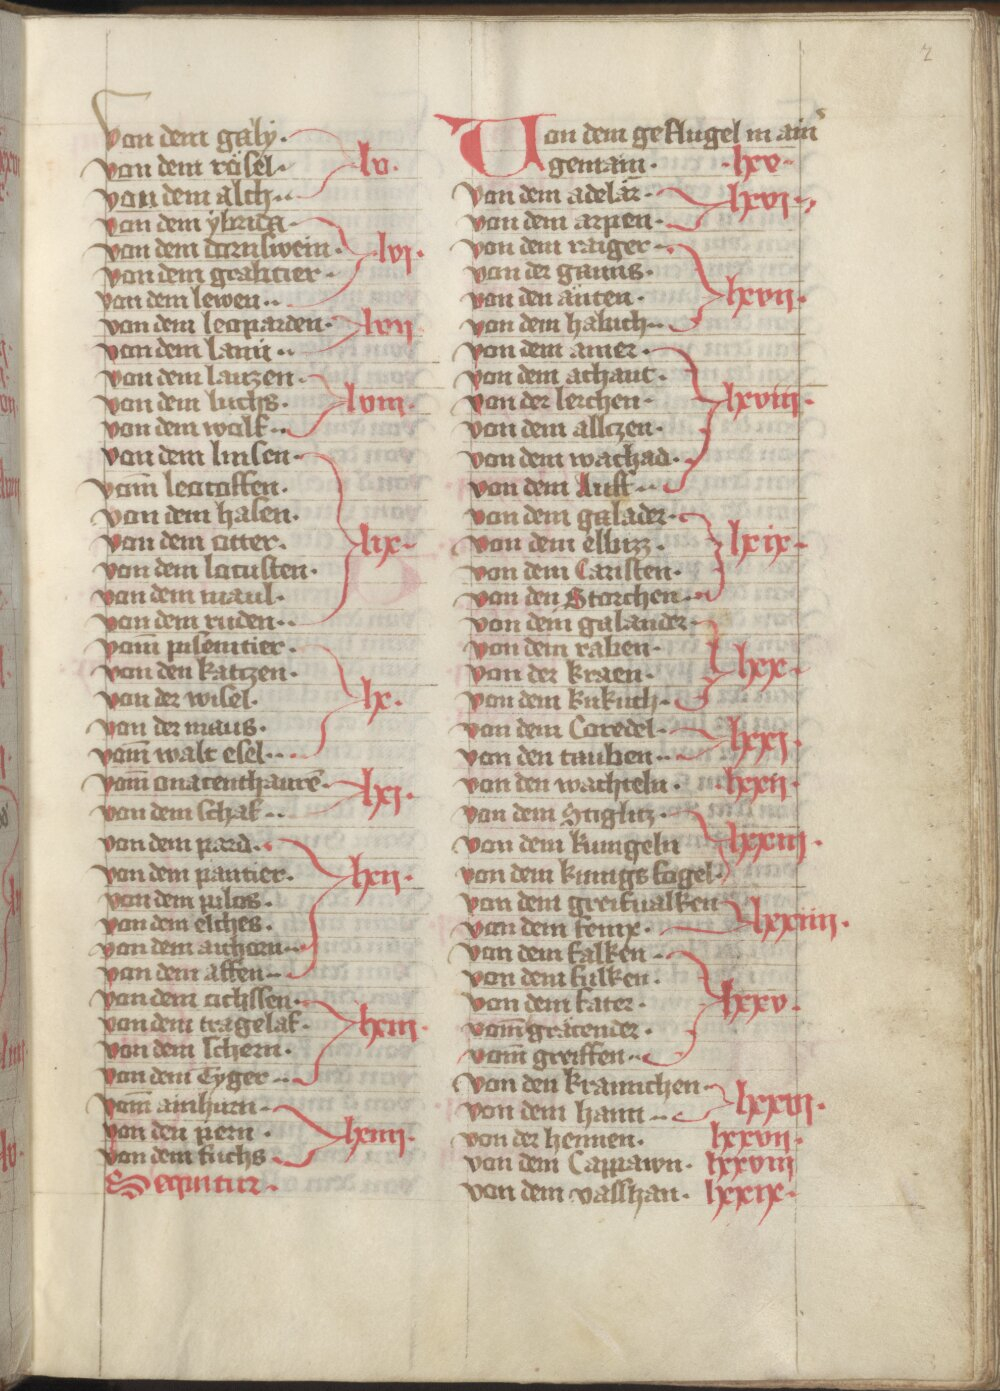 2
von dem galy·
von dem rösel··
von dem alch··
·lv·
von dem ybrida··
von dem dornswein··
von dem gealitier··
von dem lewen··
·lvi·
von dem leoparden··
von dem lanii··
·lvii·
von dem lauzen·
von dem luchs·
von dem wolf··
·lviii·
von dem linsen··
vom leotoffen·
von dem hasen·
von dem otter·
von dem locusten·
von dem maul·
von dem ruden··
·lix·
vom pisemtier·
von den katzen·
von der wisel·
von der maus·
vom walt esel··
·lx·
vom onatenthaure
von dem schaf··
·lxi·
von dem pard··
von dem pantier·
von dem pilos·
von dem elches·
von dem aichorn··
von dem affen··
·lxii·
von dem ochssen··
von dem tragelaf·
von dem schern·
von dem Tyger··
·lxiii·
vom ainhurn··
von den pern·
von dem fuchs··
·lxiiii·
Sequitur·
Von dem geflugel in ain
gemain· ·lxv·
von dem adelar··
von dem arpen··
·lxvi·
von dem raiger··
von der gauns·
von den anten·
von dem habich··
·lxvii·
von dem amer·
von dem achant·
von der lerchen·
von dem allczen·
von dem wachad·
von dem Auff··
·lxviii·
von dem galader·
von dem elbizz·
von dem Caristen·
von den Storchen··
·lxix·
von dem galander·
von dem raben·
von der kraen·
von dem kukuch··
·lxx·
von dem Coredel·
von den tauben··
·lxxi·
von den wachteln· ·lxxii·
von dem Stiglitz·
von dem kungeln
von dem kunigs fogel·
·lxxiii·
von dem greifualken
von dem fenix·
·lxxiiii·
von dem falken··
von dem fulken·
von dem fater·
vom grätender·
vom greiffen··
·lxxv·
von den kranichen·
von dem hann··
·lxxvi·
von der hennen· lxxvii·
von dem Cappawn· lxxviii
von dem vasshan· lxxix·